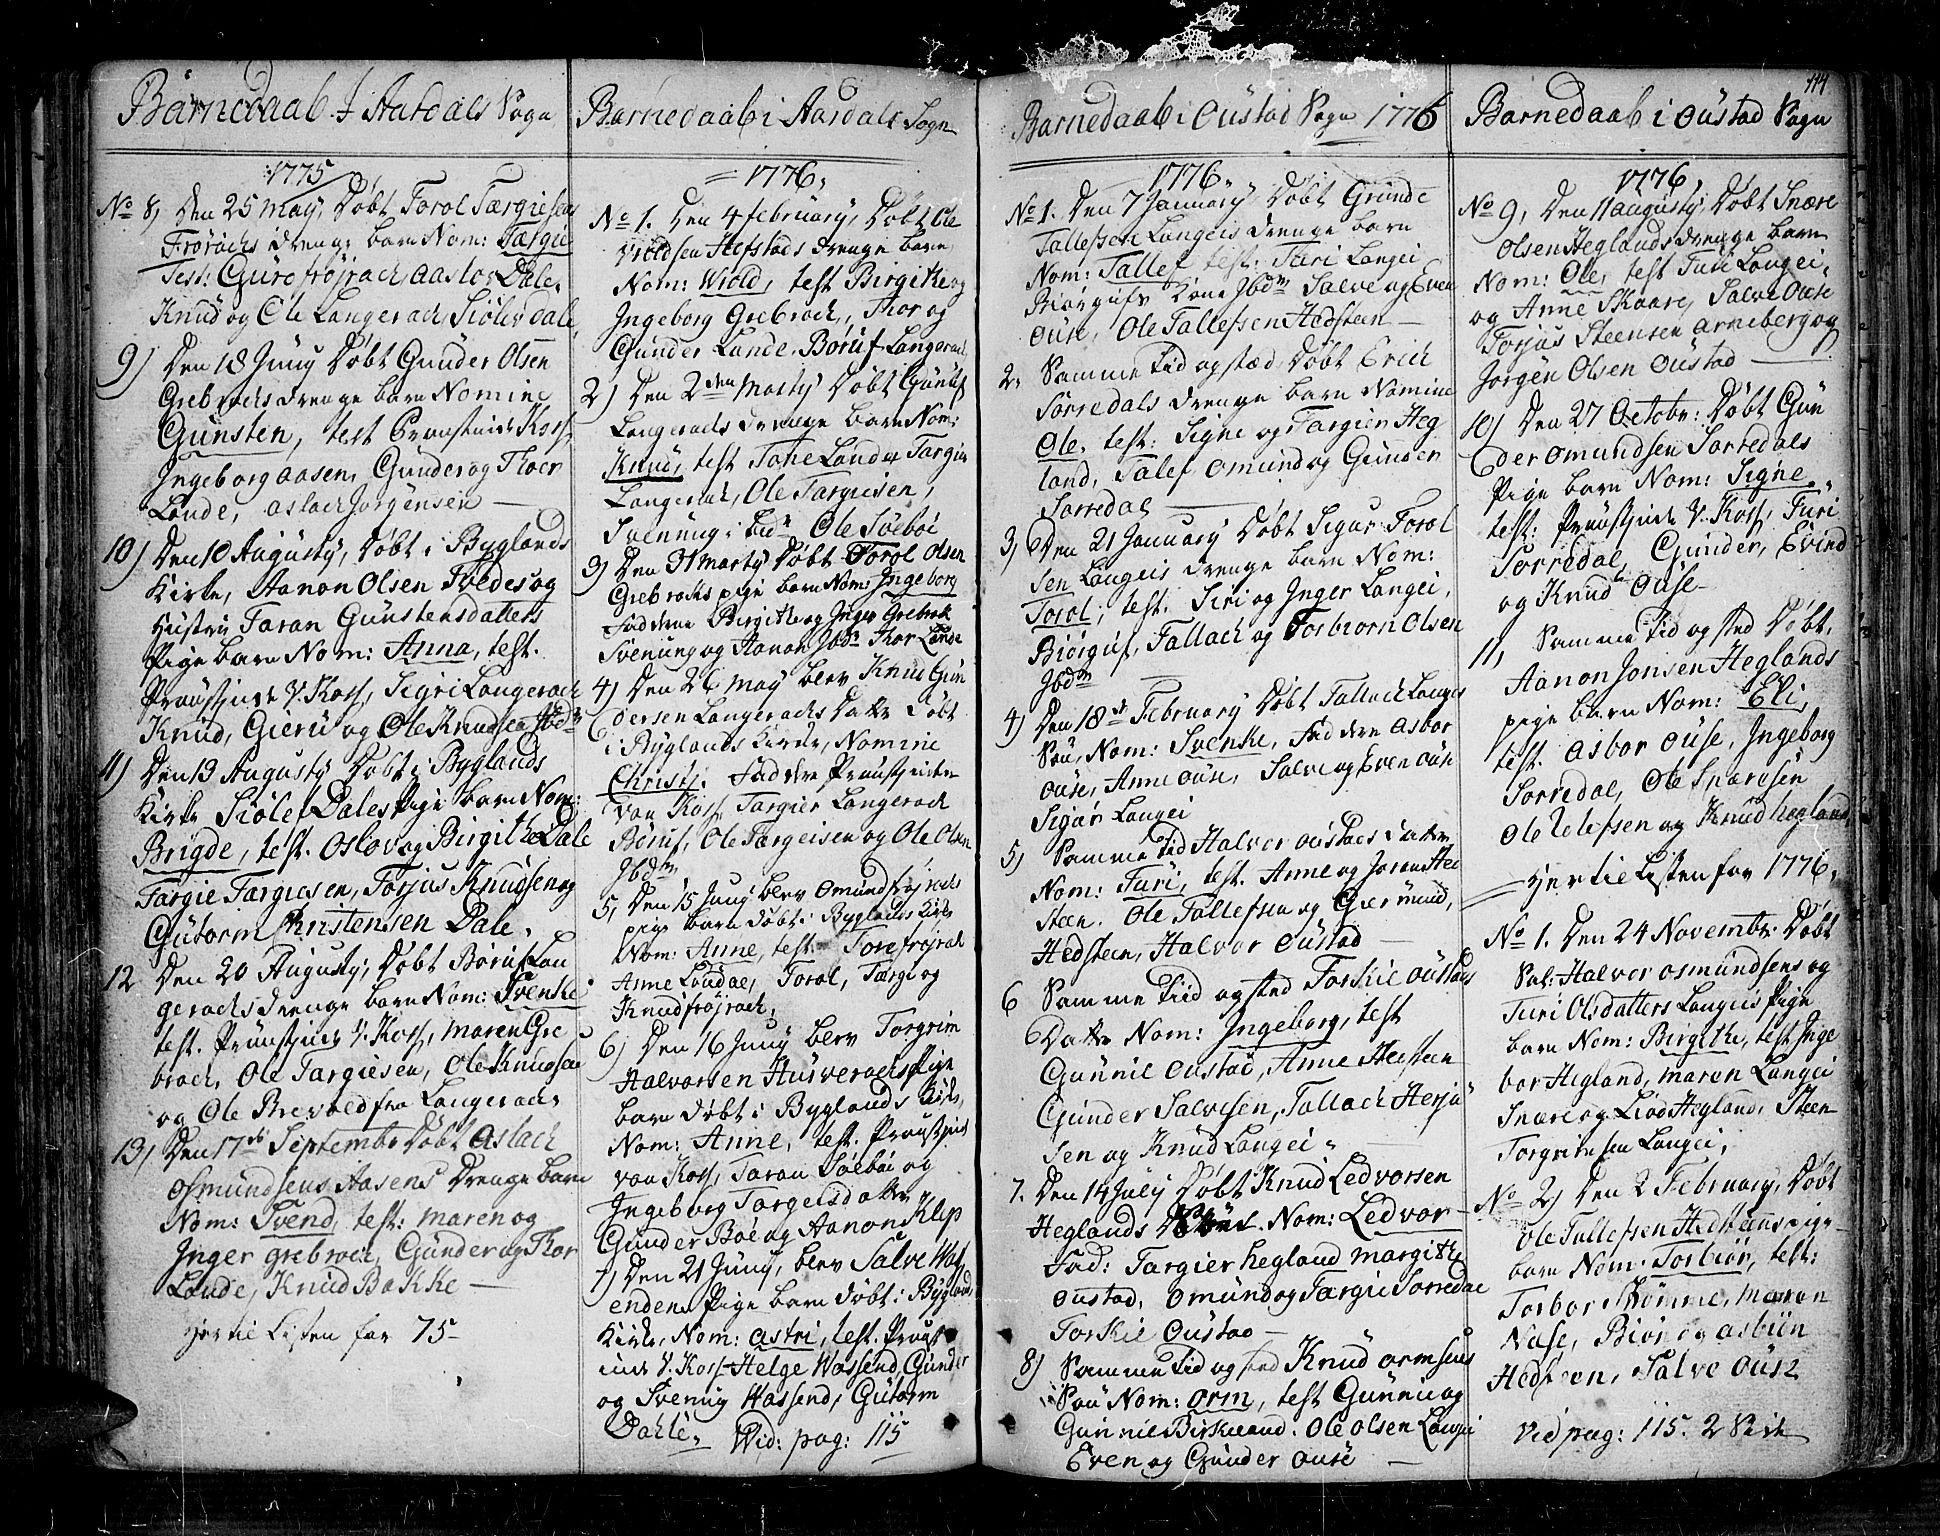 Barnedaab I Aardals Sogn
1775
No 8, Den 25 May, Döbt Torol Tærgiesens
Frörachs drenge barn Nom: Targie
Test: Güro fröjrach, Aaslo Dale,
Knud og Ole Langerach, Siölev dale
9) Den 18 Juny Döbt Gunder Olsen
Grebrochs drenge barn Nomine
Günsten, test Proustinde Koss,
Ingeborg Aasen, Gunder og Thoer
Londe, aslach Jorgensen —
10) Den 10 Augusty, Döbt i Byglands
Kirke, Aanon Olsen Tvedes og
Hustru Taran Günstensdatters
Pige barn Nom: Anna, test.
Proustinde V. Koss, Sigri Langerach
Knud, Gierü og Ole Knudsen Ibdm
11) Den 13 Augusty Döbt i Byglands
Kirke Siölef Dales Pige barn Nom:
Brigde, test. Oslov og Birgithe Dale
Targie Targiesen, Torjus Knudsen og
Gutorm Christensen Dale.
12 Den 20 Augusty, Döbt Börüf Lan
gerachs drenge barn Nom: Svenke
test. Proustinde V. Koss, maren Gre
broch, Ole Targiesen, Ole Knudsen
og Ole Brevold fra Langerach
13) Den 17de September Döbt Aslach
Osmundsens Aasens Drenge barn
Nom: Svend, test: maren og
Inger grebroch, Günder og Thor
Londe, Knud Bakke —
her til Listen for 75 —
Barnedaab i Aardals Sogn
1776,
No 1. Den 4 february, Döbt Ole
Violdsen Hefstads drenge barn
Nom: Wiold, test Birgithe og
Ingeborg Grebroch, Thor og
Gunder Lunde. Börüf Langerach
2) Den 2den Marty Döbt Günüf
Langerachs drenge barn Nom:
Knud, test Tone Londe Targier
Langerach, Ole Targiesen,
Svenung ibdm Ole Söeböe
3) Den 31 Marty Döbt Torol Olsen
Grebrochs pige barn Nom: Ingeborg
Faddere Birgithe og Inger Grebrok
Svenung og Aanon Ibdm Thor Londe
4) Den 26 May blev Knud Gun
dersen Langerachs Datter Döbt
i Byglands Kirke, Nomine
Christj: Faddere Proustinden
von Koss, Targier Langerach
Börüf, Ole Targeisen og Ole Olsen
Ibdm
5, Den 15 Juny blev Omund fröjrachs
pige barn döbt i Byglands Kirke
Nom: Anne, test: Tore fröjrach
Anne Londal, Torol, Tærge og
Knud fröjrach,
6) Den 16 Juny blev Torgrim
Halvorsen Husverachs Pige
barn döbt i Byglands Kirke,
Nom: Anne, test. Proustinde
von Koss, Taran Söeböe og
Ingeborg Targeisdatter
Gunder Böe og Aanon Klep
7, Den 21 Juny, blev Salve Was
enden Pige barn döbt i Byglands
Kirke, Nom: astri, test. Proust
inde V. Koss Helge Wassend, Gunder
og Svenung Wassend, Gutorm
Dahle, Vid: pag: 115
Barnedaab i Oustad Sogn 1776
1776
No 1. Den 7 January Döbt Grunde
Tallefsen Langeis drenge barn
Nom: Tallef test: Turi Langei
Biörgufs Kone Ibdm Salve og Even
Ouse, Ole Tallefsen Hedsteen —
2, Samme tid og stæd Döbt Erich
Sörredals drenge barn Nomine
Ole. test: Signe og Targier Heg
land, Talef Omund og Gunder
Sorredal —
3, Den 21 January Döbt Sigur Torol
sen Langeis drenge barn Nom:
Torol; test. Siri og Inger Langei,
Biörguf, Tallach og Torbiorn Olsen
Ibdm —
4) Den 18de February Döbt Tallach Langeis
Sön, Nom: Svenke, Faddere Asbor
Ouse, Anne ouse, Salve og Even Ouse
Sigur Langei
5) Samme tid Halvor Oustads datter
Nom: Turi, test. Anne og Joran Hed
steen. Ole Tallefsen og Giermund,
Hedsteen, Halvor Oustad —
6 Samme tiid og sted Torkie Oustads
Datter Nom: Ingeborg, test
Gunnil Oustad, Anne Hedsteen
Günder Salvesen, Tallach Herju
sen og Knud Langei,
7. Den 14 July Döbt Knud Ledvorsen
Heglands Nom: Ledvor —
Fad: Targier hegland margithe
Oustad, Omund og Targie Sorredal
Torkie Oustad —
8) Samme tid og sted Knud Ormsens
Sön Nom: Orm, test Gunni og
Gunnil Birkeland. Ole Olsen Langei
Even og Gunder Ouse —
114
Barnedaab i Oustad Sogn
1776,
No 9, Den 11 augusty, Döbt Snære
Olsen Heglands drenge barn
Nom: Ole, test Turi Langei,
og Anne Skaare, Salve Ouse
Torjus Steensen Arneberg og
Jorgen Olsen Oustad —
10) Den 27 Octobr: Döbt Gün
der Omundsen Sorredals
Pige barn Nom: Signe,
test: Proustinde V. Koss, Turi
Sorredal, Gunder, Evind
og Knud Ouse —
11, Samme tid og sted Döbt,
Aanon Jonsen Heglands
pige barn Nom: Eli,
test. Asbor Ouse, Ingeborg
Sorredal, Ole Snaresen
Ole Ulefsen og Knud hegland
her til Listen for 1776,
No 1. Den 24 Novembr: Döbt
Sal: Halvor Osmundsens og
Turi Olsdatters Langeis Pige
barn Nom: Birgithe, test Inge
bor Hegland, maren Langei
Snære og Liod Hegland, Steen
Torgrimsen Langei,
No 2) Den 2 February, Döbt
Ole Tallefsen Hedsteens pige
barn Nom. Torbiör, test:
Torbor Homme, maren
Nase, Biörn og asbiön
Hedsteen, Salve Ouse
Vid pag: 115. 2 Side